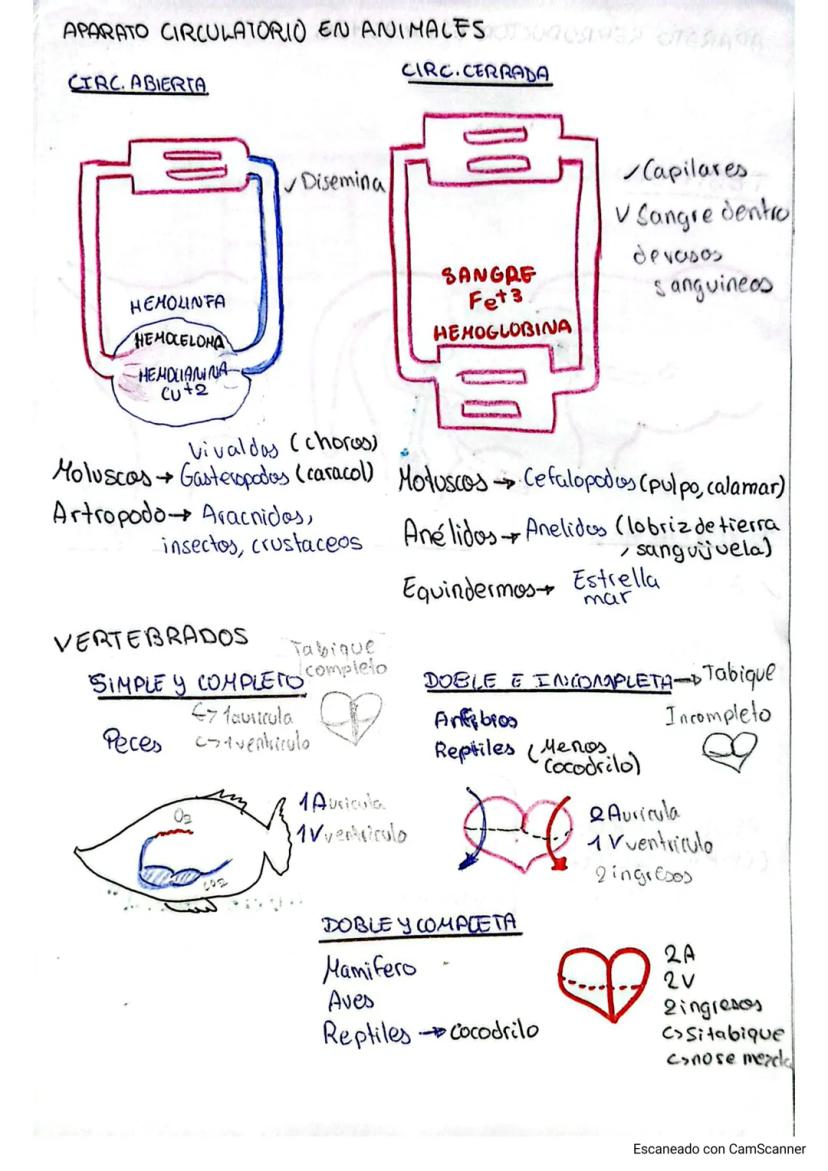 APARATO CIRCULATORIO EN ANIMALES
CIRC. ABIERTA
✓ Disemina
HEMOLINFA
HEMOCELOMA
HEMOCIANINA
CU+2
Vivaldos (choros)
Moluscos → Gasteropodos (caracol)
Artropodo → Aracnidos,
insectos, crustaceos
CIRC. CERRADA
✓ Capilares
✓ Sangre dentro
de vasos
sanguineos
SANGRE
Fe+3
HEMOGLOBINA
Moluscos → Cefalopodos (pulpo, calamar)
Anélidos → Anelidos (lobriz de tierra
, sanguijuela)
Equindermos → Estrella
mar
VERTEBRADOS
Tabique
completo
SIMPLE Y COMPLETO
↳ 1 auricula
Peces
↳ 1 ventriculo
O2
CO2
1 Auricula
1 Vventriculo
DOBLE E INCOMPLETA → Tabique
Incompleto
Anfibios
Reptiles (Menos
cocodrilo)
2 Auricula
1 Vventriculo
2 ingresos
DOBLE Y COMPLETA
Mamifero
Aves
Reptiles → cocodrilo
2A
2V
2 ingresos
↳ Si tabique
↳ no se mezcla
Escaneado con CamScanner